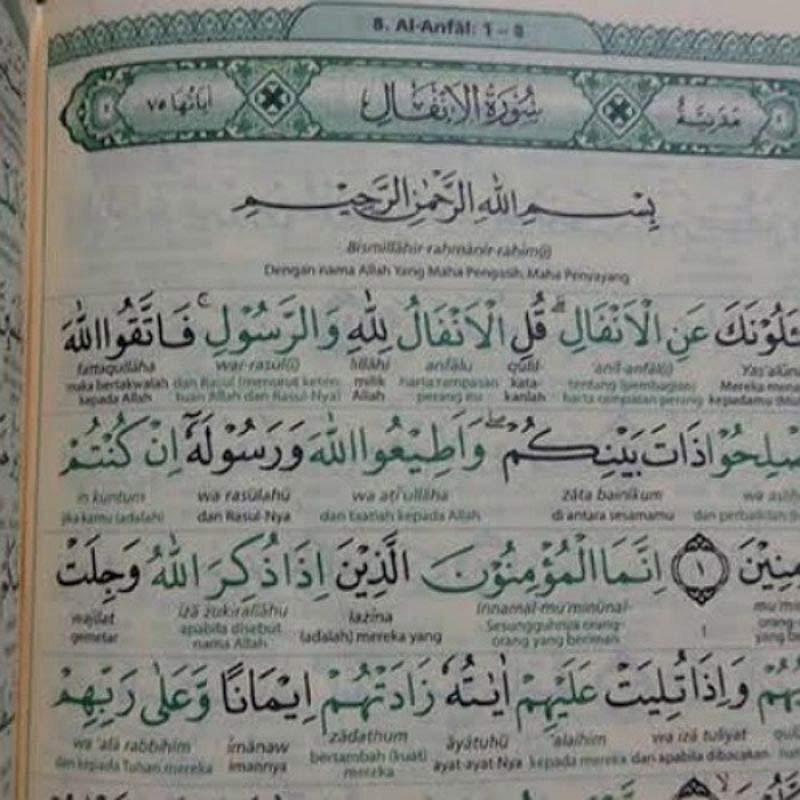 8. Al-Anfāl: 1 – 8
مدنية سورة الانفال اياتها ٧٥
بِسْمِ اللّٰهِ الرَّحْمٰنِ الرَّحِيْمِ
Bismillāhir-raḥmānir-raḥīm(i)
Dengan nama Allah Yang Maha Pengasih, Maha Penyayang
ـَٔلُوْنَكَ عَنِ الْاَنْفَالِۗ قُلِ الْاَنْفَالُ لِلّٰهِ وَالرَّسُوْلِۚ فَاتَّقُوا اللّٰهَ
fattaqullāha war-rasūl(i) lillāhi anfālu qulil- 'anil-anfāl(i) Yas'alūna
maka bertakwalah dan Rasul (menurut keten- milik harta rampasan kata- tentang (pembagian) Mereka mena
kepada Allah tuan Allah dan Rasul-Nya) Allah perang itu kanlah harta rampasan perang kepadamu
صْلِحُوْا ذَاتَ بَيْنِكُمْۖ وَاَطِيْعُوا اللّٰهَ وَرَسُوْلَهٗٓ اِنْ كُنْتُمْ
in kuntum wa rasūlahū wa aṭī'ullāha żāta bainikum wa aṣliḥ
jika kamu (adalah) dan Rasul-Nya dan taatlah kepada Allah di antara sesamamu dan perbaikilah
مِنِيْنَ ١ اِنَّمَا الْمُؤْمِنُوْنَ الَّذِيْنَ اِذَا ذُكِرَ اللّٰهُ وَجِلَتْ
wajilat iżā żukirallāhu lażīna Innamal-mu'minūnal- mu'mi
gemetar apabila disebut (adalah) mereka yang Sesungguhnya orang- 1 orang-
nama Allah orang yang beriman yang be
بُهُمْ وَاِذَا تُلِيَتْ عَلَيْهِمْ اٰيٰتُهٗ زَادَتْهُمْ اِيْمَانًا وَّعَلٰى رَبِّهِمْ
wa 'alā rabbihim īmānaw zādathum āyātuhū 'alaihim wa iżā tuliyat qulū
dan kepada Tuhan mereka imannya bertambah (kuat) ayat-ayat-Nya kepada mereka dan apabila dibacakan hati
mereka